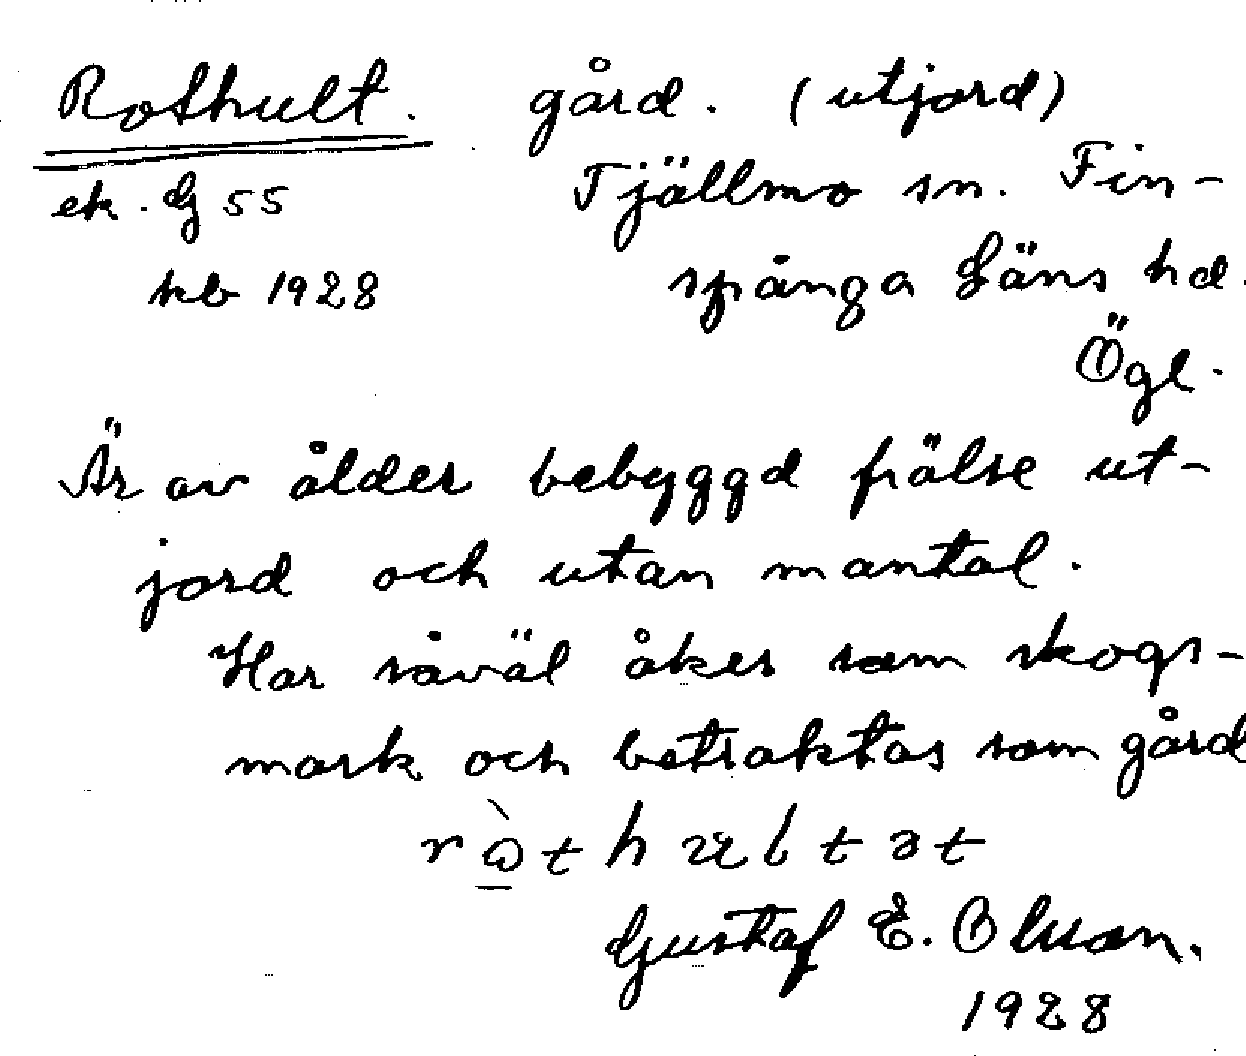 Rothult. gård. (utjord)
ek. Gg 55 Tjällmo sn. Fin-
kb 1928 spånga Läns hd.
Ögl.
Är av ålder bebyggd frälse ut-
jord och utan mantal.
Har såväl åker som skogs-
mark och betraktas som gård
Gustaf E. Olsson.
1928